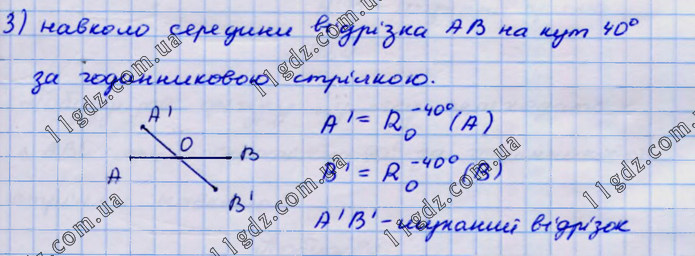 3) навколо середини відрізка AB на кут 40°
за годинниковою стрілкою.
A' = R_O^{-40°}(A)
B' = R_O^{-40°}(B)
A'B' - шуканий відрізок
A'
O
A
B
B'
11gdz.com.ua
11gdz.com.ua
11gdz.com.ua
11gdz.com.ua
11gdz.com.ua
11gdz.com.ua